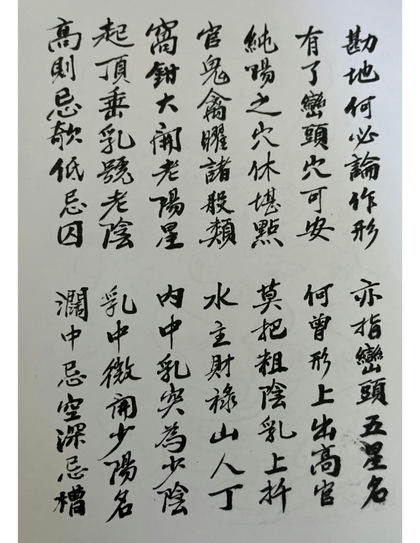 勘地何必論作形 亦指巒頭五星名
有了巒頭穴可安 何曾形上出高官
純陽之穴休堪點 莫把粗陰乳上扦
官鬼禽曜諸般類 水主財祿山人丁
窩鉗大開老陽星 內中乳突為少陰
起頂垂乳號老陰 乳中微開少陽名
高則忌欹低忌囚 濶中忌空深忌槽